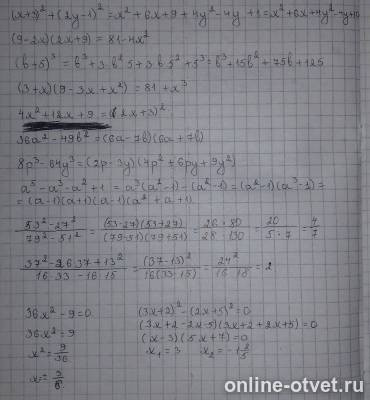 (x+3)² + (2y-1)² = x² + 6x + 9 + 4y² - 4y + 1 = x² + 6x + 4y² - 4y + 10
(9-2x)(2x+9) = 81 - 4x²
(b+5)³ = b³ + 3·b²·5 + 3·b·5² + 5³ = b³ + 15b² + 75b + 125
(3+x)(9-3x+x²) = 81 + x³
4x² + 12x + 9 = (2x+3)²
36a² - 49b² = (6a-7b)(6a+7b)
8p³ - 64y³ = (2p-3y)(4p²+6py+9y²)
a⁵ - a³ - a² + 1 = a³(a²-1) - (a²-1) = (a²-1)(a³-1) =
= (a-1)(a+1)(a-1)(a²+a+1)
(53²-27²)/(79²-51²) = (53-27)(53+27)/(79-51)(79+51) = 26·80/28·130 = 20/5·7 = 4/7
(37²-2·6·37+13²)/(16·33-16·15) = (37-13)²/16(33-15) = 24²/16·18 = 2
36x² - 9 = 0 (3x+2)² - (2x+5)² = 0
36x² = 9 (3x+2-2x-5)(3x+2+2x+5) = 0
x² = 9/36 (x-3)(5x+7) = 0
x = 3/6 x₁ = 3 x₂ = -1 2/5
online-otvet.ru